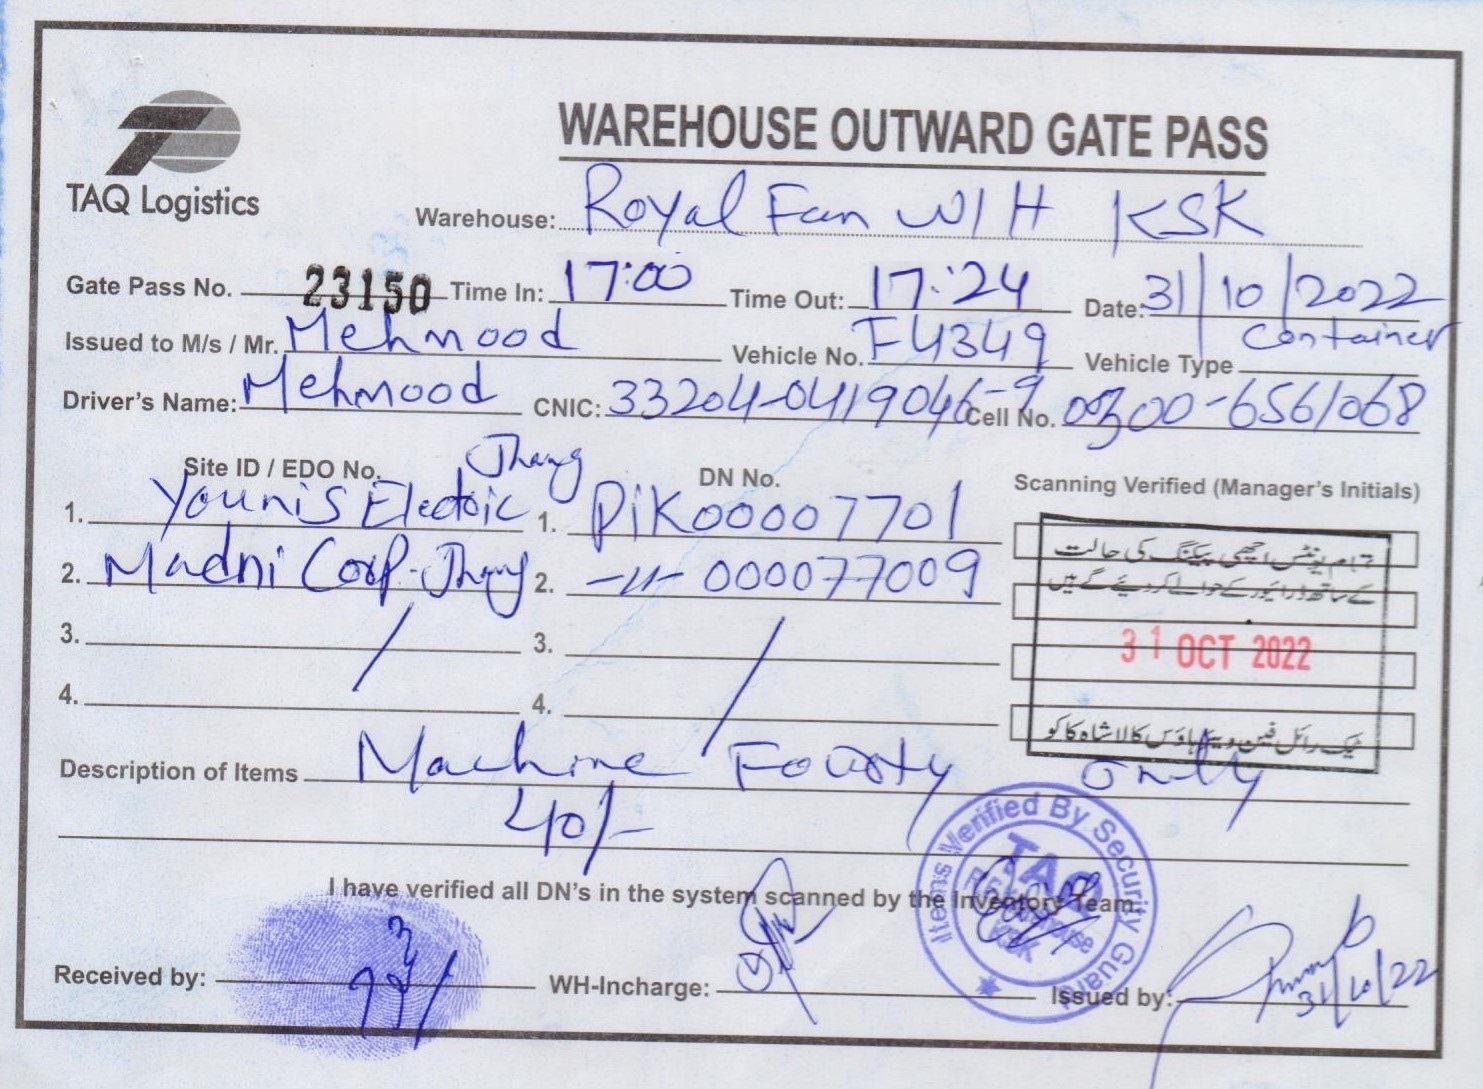 TAQ Logistics
WAREHOUSE OUTWARD GATE PASS
Warehouse: Royal Fan W/H KSK
Gate Pass No. 23150 Time In: 17:00 Time Out: 17:24 Date: 31/10/2022
Issued to M/s / Mr. Mehmood Vehicle No. F4349 Vehicle Type Container
Driver's Name: Mehmood CNIC: 33204-0419046-9 Cell No. 0300-6561068
Site ID / EDO No. DN No. Scanning Verified (Manager's Initials)
1. Younis Electric Jhang 1. PiK00007701
2. Madni Corp. Jhang 2. -11- 000077009
3. / 3. /
4. 4.
تمام یونٹس اچھی پیکنگ کی حالت
کے ساتھ ڈرائیور کے حوالے کر دیئے گئے ہیں
31 OCT 2022
ٹیک رائل فین ویئر ہاؤس کالا شاہ کاکو
Description of Items Machine Fourty only
40/-
I have verified all DN's in the system scanned by the Inventory Team.
Items Verified By Security Guard
TAQ
Warehouse
KSK
Received by: WH-Incharge: Issued by: 31/10/22